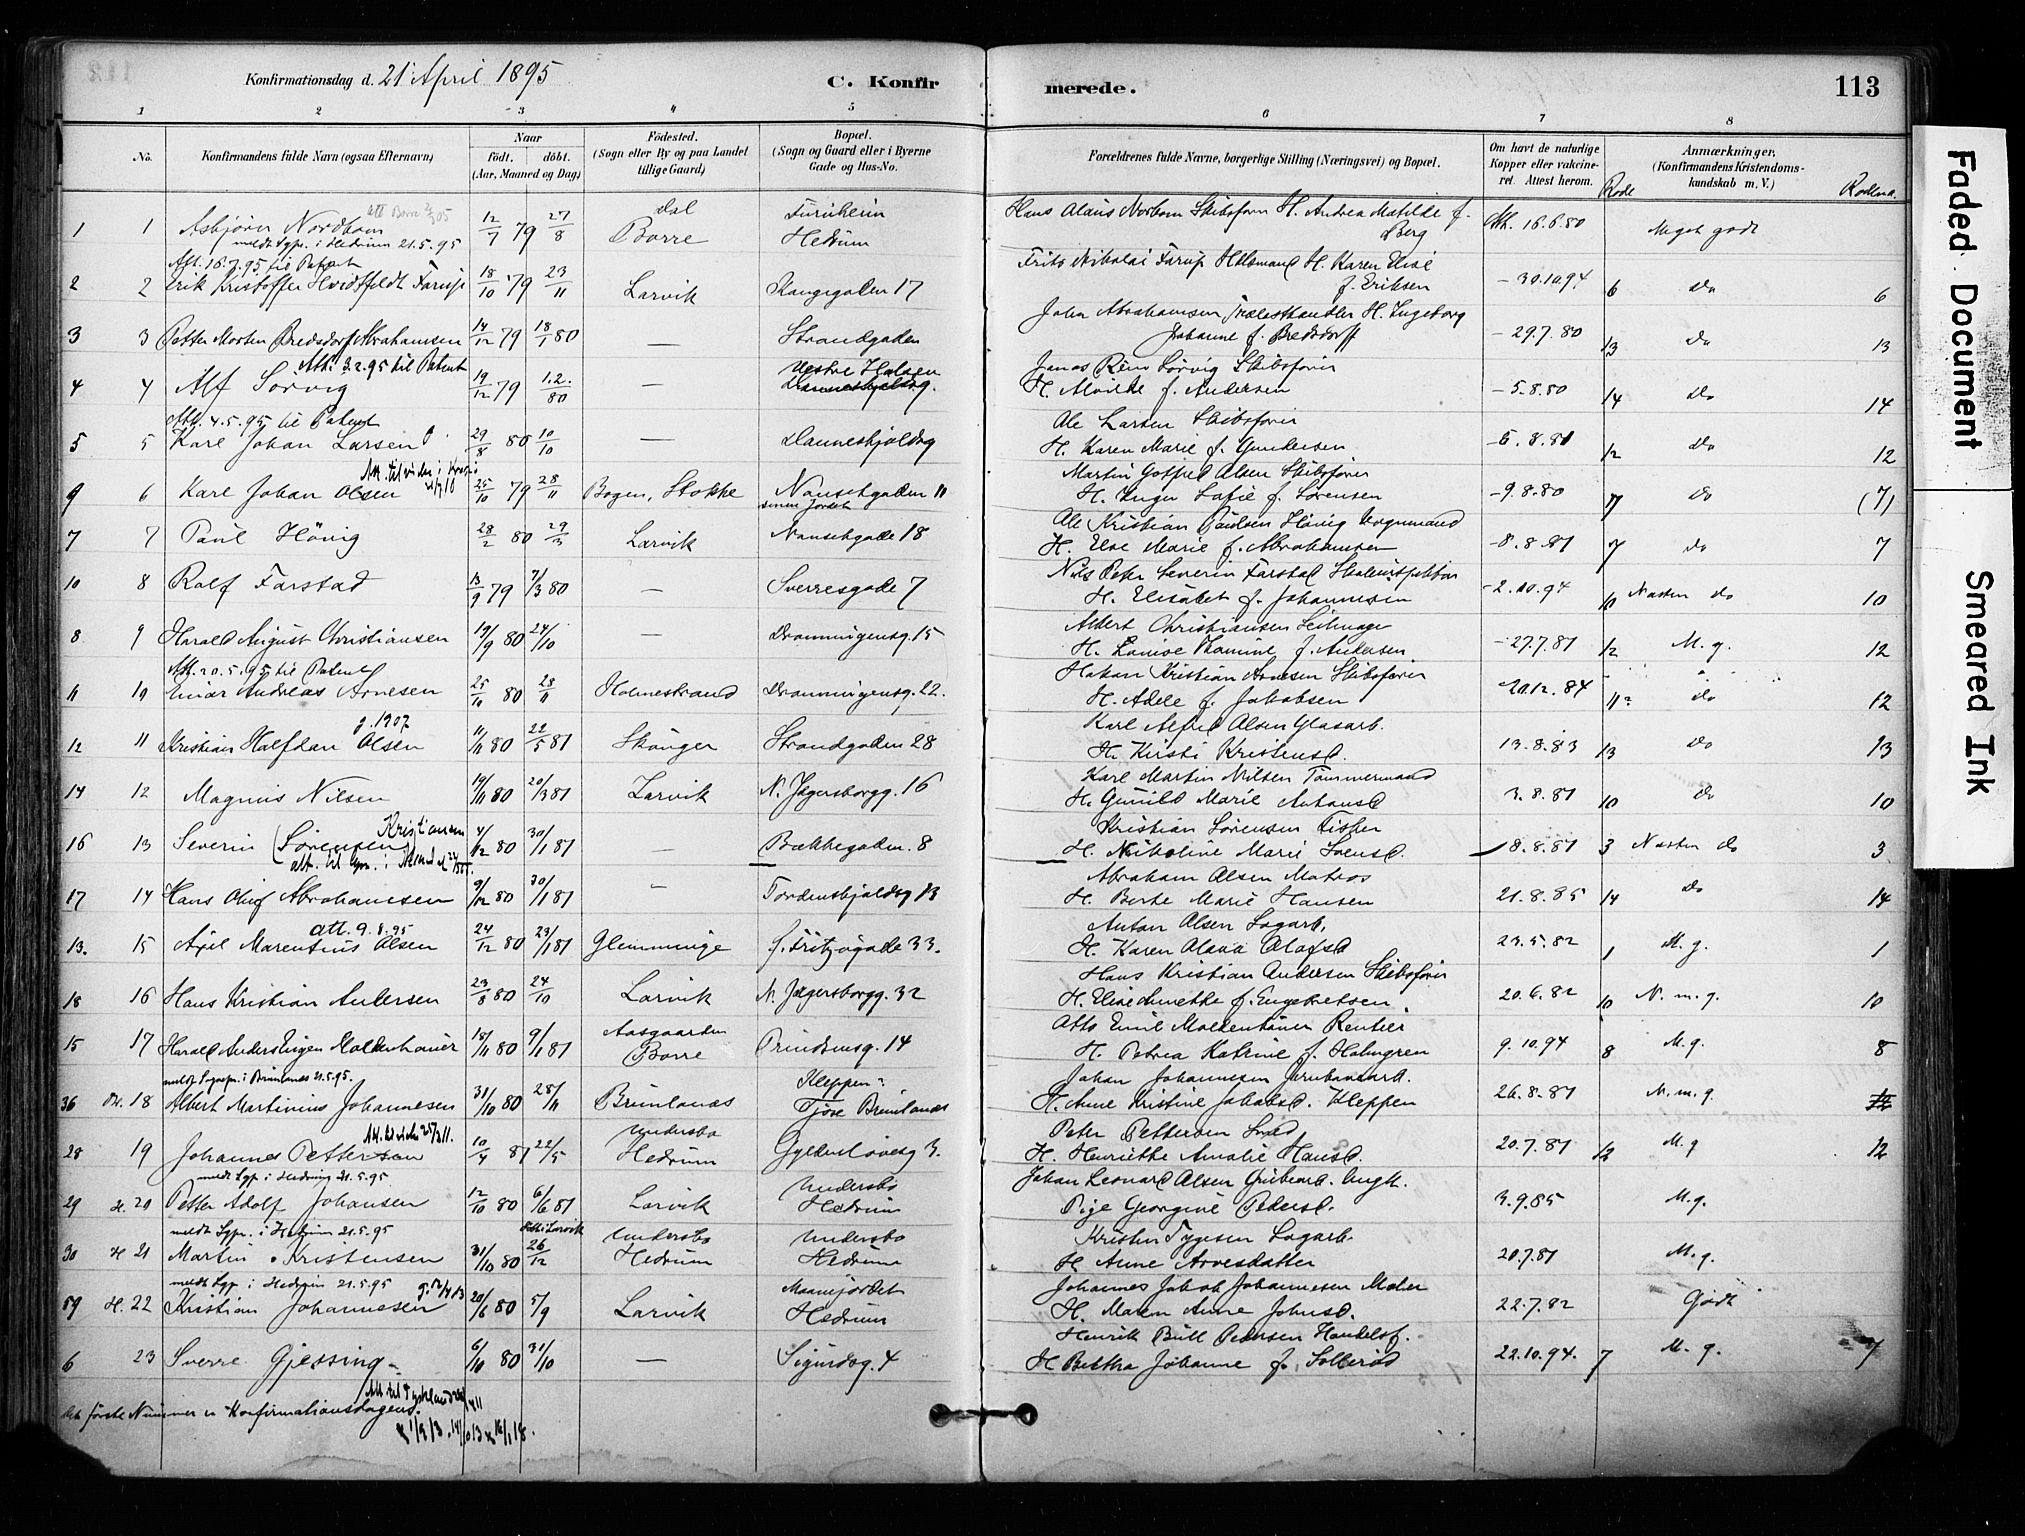 Konfirmationsdag d. 21 April 1895 C. Konfirmerede. 113
1 2 3 4 5 6 7 8
No. Konfirmandens fulde Navn (ogsaa Efternavn) Naar født. døbt. (Aar, Maaned og Dag) Fødested. (Sogn eller By og paa Landet tillige Gaard) Bopæl. (Sogn og Gaard eller i Byerne Gade og Hus-No. Forældrenes fulde Navne, borgerlige Stilling (Næringsvei) og Bopæl. Om havt de naturlige Kopper eller vakcineret. Attest herom. Rode Anmærkninger, (Konfirmandens Kristendomskundskab m. V.) Rodena.
1 1 Asbjørn Nordbom 12/7 79 27/8 Borre Hedrum Hans Olaus Norbom Skibsfører H. Andrea Matilde f. Berg Att. 16.6.80 Meget godt
meldt Sgpr. i Hedrum 21.5.95
Att. 16.7.95 til Patent
2 2 Erik Kristoffer Hvidtfeldt Farup 18/10 79 23/11 Larvik Kongegaden 17 Frits Nikolai Farup H. Karen Elise f. Eriksen - 30.10.94 6 do 6
3 3 Petter Morten Bredsdorf Abrahamsen 14/12 79 18/1 80 — Strandgaden John Abrahamsen H. Ingeborg Johanne f. Bredsdorff - 29.7.80 13 do 13
Att. 3.2.95 til Patent
4 4 Alf Sørvig 19/12 79 1.2. 80 — Vestre Halsen Jonas Sørvig Skibsfører H. f. Andersen - 5.8.80 14 do 14
Att. 4.5.95 til Patent
5 5 Karl Johan Larsen 29/8 80 10/10 — Danneskjoldsg Ole Larsen Skibsfører H. Karen Marie f. Gundersen - 5.8.81 12 do 12
9 6 Karl Johan Olsen 25/10 79 28/11 Bogen, Stokke Nansetgaden 11 Martin Gotfred Olsen Skibsfører H. Inger Sofie f. Sørensen - 9.8.80 7 do (7)
7 7 Paul Høvig 28/2 80 29/3 Larvik Nansetgade 18 Ole Kristian Paulsen Høvig Vognmand H. Else Marie f. Abrahamsen - 8.8.81 7 do 7
10 8 Rolf Farstad 13/9 79 7/3 80 — Sverresgade 7 Nils Peter Severin Farstad Skoleinspektør H. Elisabet f. Johannesen - 2.10.94 10 Næsten do 10
8 9 Harald August Christiansen 19/9 80 24/10 — Dronningensg. 15 Albert Christiansen Seilmager H. Lovise f. Andersen - 27.7.81 12 M. g. 12
Att. 20.5.95 til Patent
11 10 Einar Andreas Arnesen 25/10 80 28/11 Holmestrand Dronningensg. 22. Hakon Kristian Arnesen Skibsfører H. Adele f. Jakobsen - 20.12.84 11 do 12
12 11 Kristian Halfdan Olsen 11/11 80 22/5 81 Skånger Strandgaden 28 Karl Alfred Olsen Glasarb. H. Kirsti Kristensd. 13.8.83 13 do 13
14 12 Magnus Nilsen 19/11 80 20/3 81 Larvik N. Jegersborgg. 16 Karl Martin Nilsen Tømmermand H. Gunild Marie Antonsd 3.8.81 10 do 10
16 13 Severin (Sørensen) Kristiansen 4/12 80 30/1 81 — Bækkegaden. 8 Kristian Sørensen Fisker H. Nikoline Marie 18.8.81 3 Næsten do 3
17 14 Hans Oluf Abrahamsen 9/12 80 30/1 81 — Tordenskjoldsg 13 Abraham Olsen Matros H. Berte Marie Hansen 21.8.85 14 do 14
att. 9.8.95
13. 15 Axel Marentius Olsen 24/12 80 23/1 81 Glemminge f. Fritzøgade 33. Anton Olsen Sagarb. H. Karen Olava Olafsd 23.5.82 1 M. g. 1
18 16 Hans Kristian Andersen 23/8 80 24/10 Larvik N. Jegersborgg. 32 Hans Kristian Andersen Skibsfører H. Elise Annette f. Engebretsen 20.6.82 10 N. m. g. 10
15 17 Harald Anders Ingen Moldenhauer 18/11 80 9/1 81 Aasgaarden Borre Prindsensg. 14 Otto Emil Moldenhauer Rentier H. Petrea Katrine f. Holmgren 9.10.94 8 M. g. 8
meldt Sognepr. i Brunlanes 21.5.95.
36 18 Albert Martinius Johannesen 31/10 80 28/11 Brunlanes Kleppen Tjøse Brunlanes Johan Johannesen Jernbanearb. H. Anne Kristine Jakobsd. Kleppen 26.8.81 N. m. g.
28 19 Johannes Pettersen 10/4 81 22/5 Undersbo Hedrum Gyldenløvesg 3. Peter Pettersen Smed H. Henriette Amalie Hansd. 20.7.81 12 M. g 12
meldt Sgp. i Hedrum 21.5.95
29 H. 20 Petter Adolf Johansen 12/10 80 6/6 81 Larvik Undersbo Hedrum Johan Leonard Olsen Grubearb. Ungk. Pige Georgine Pedersd. 3.9.85 M. g.
meldt Sgpr. i Hedrum 21.5.95
30 H 21 Martin Kristensen 31/10 80 26/12 Undersbo Hedrum Undersbo Hedrum Kristen Tygesen Sagarb. H Anne Arvesdatter 20.7.81 M. g.
meldt Sgp i Hedrum 21.5.95
59 H. 22 Kristian Johannesen 20/6 80 5/9 Larvik Hedrum Johannes Jakob Johannesen Maler H. Maren Anne Johnsd. 22.7.82 Godt
6 23 Sverre Gjessing 6/10 80 31/10 — Sigurdsg. 4 Henrik Bull Pedersen Handelsf. H Bertha Johanne f. Sollerød 22.10.94. 7 M. g. 7
det første Nummer er Konfirmationsdagens.
Faded Document
Smeared Ink